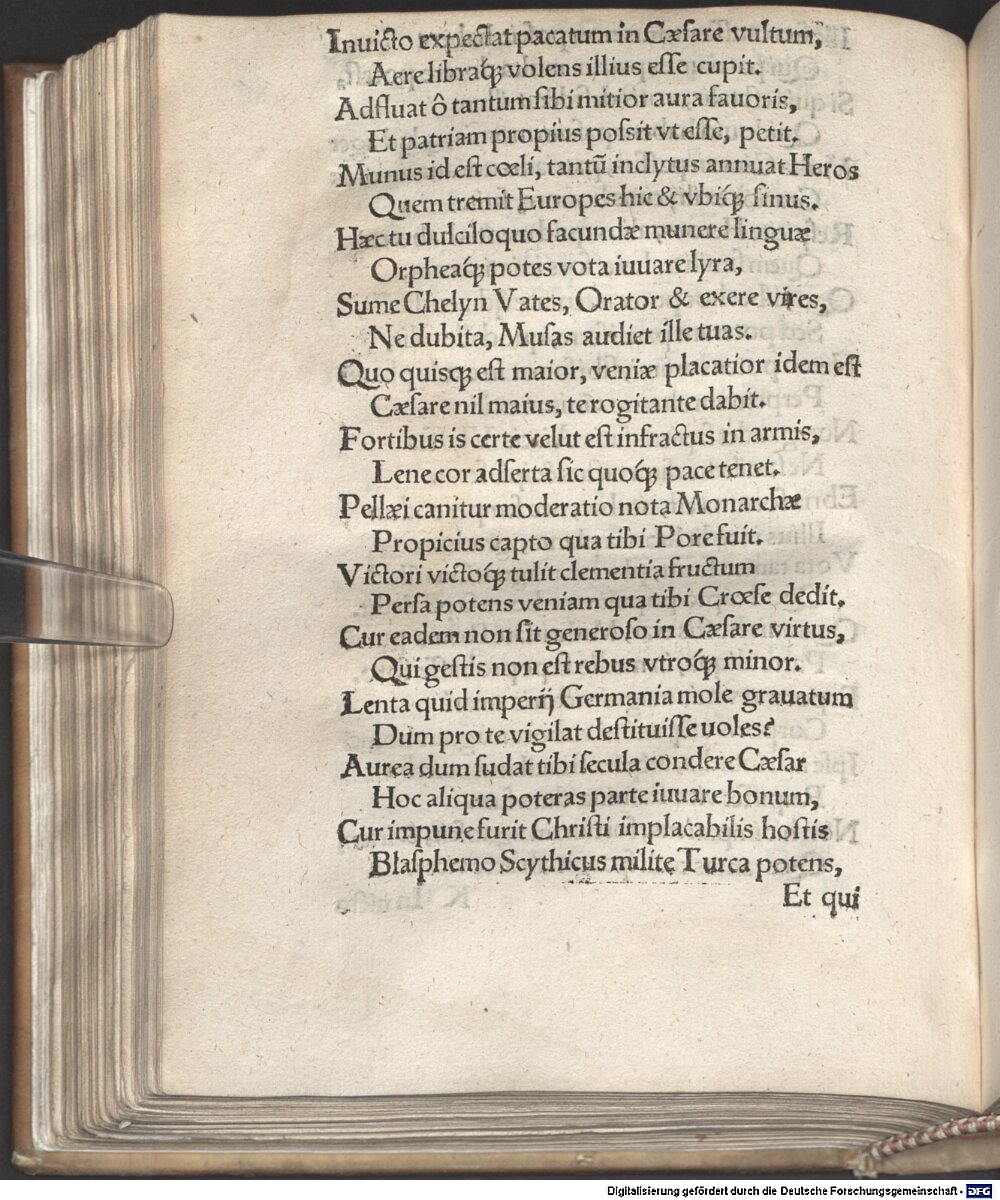 Inuicto expectat pacatum in Cæſare vultum,
Aere libraq́ꝫ volens illius eſſe cupit.
Adfluat ô tantum ſibi mitior aura fauoris,
Et patriam propius poſsit vt eſſe, petit.
Munus id eſt cœli, tantū inclytus annuat Heros
Quem tremit Europes hic & vbiq́ꝫ ſinus.
Hæc tu dulciloquo facundæ munere linguæ
Orpheaq́ꝫ potes vota iuuare lyra,
Sume Chelyn Vates, Orator & exere vires,
Ne dubita, Muſas audiet ille tuas.
Quo quisqꝫ eſt maior, veniæ placatior idem eſt
Cæſare nil maius, te rogitante dabit.
Fortibus is certe velut eſt infractus in armis,
Lene cor adſerta ſic quoq́ꝫ pace tenet.
Pellæi canitur moderatio nota Monarchæ
Propicius capto qua tibi Pore fuit.
Victori victoq́ꝫ tulit clementia fructum
Perſa potens veniam qua tibi Crœſe dedit.
Cur eadem non ſit generoſo in Cæſare virtus,
Qui geſtis non eſt rebus vtroq́ꝫ minor.
Lenta quid imperij Germania mole grauatum
Dum pro te vigilat deſtituiſſe uoles?
Aurea dum ſudat tibi ſecula condere Cæſar
Hoc aliqua poteras parte iuuare bonum,
Cur impune furit Chriſti implacabilis hoſtis
Blaſphemo Scythicus milite Turca potens,
Et qui
Digitalisierung gefördert durch die Deutsche Forschungsgemeinschaft - DFG